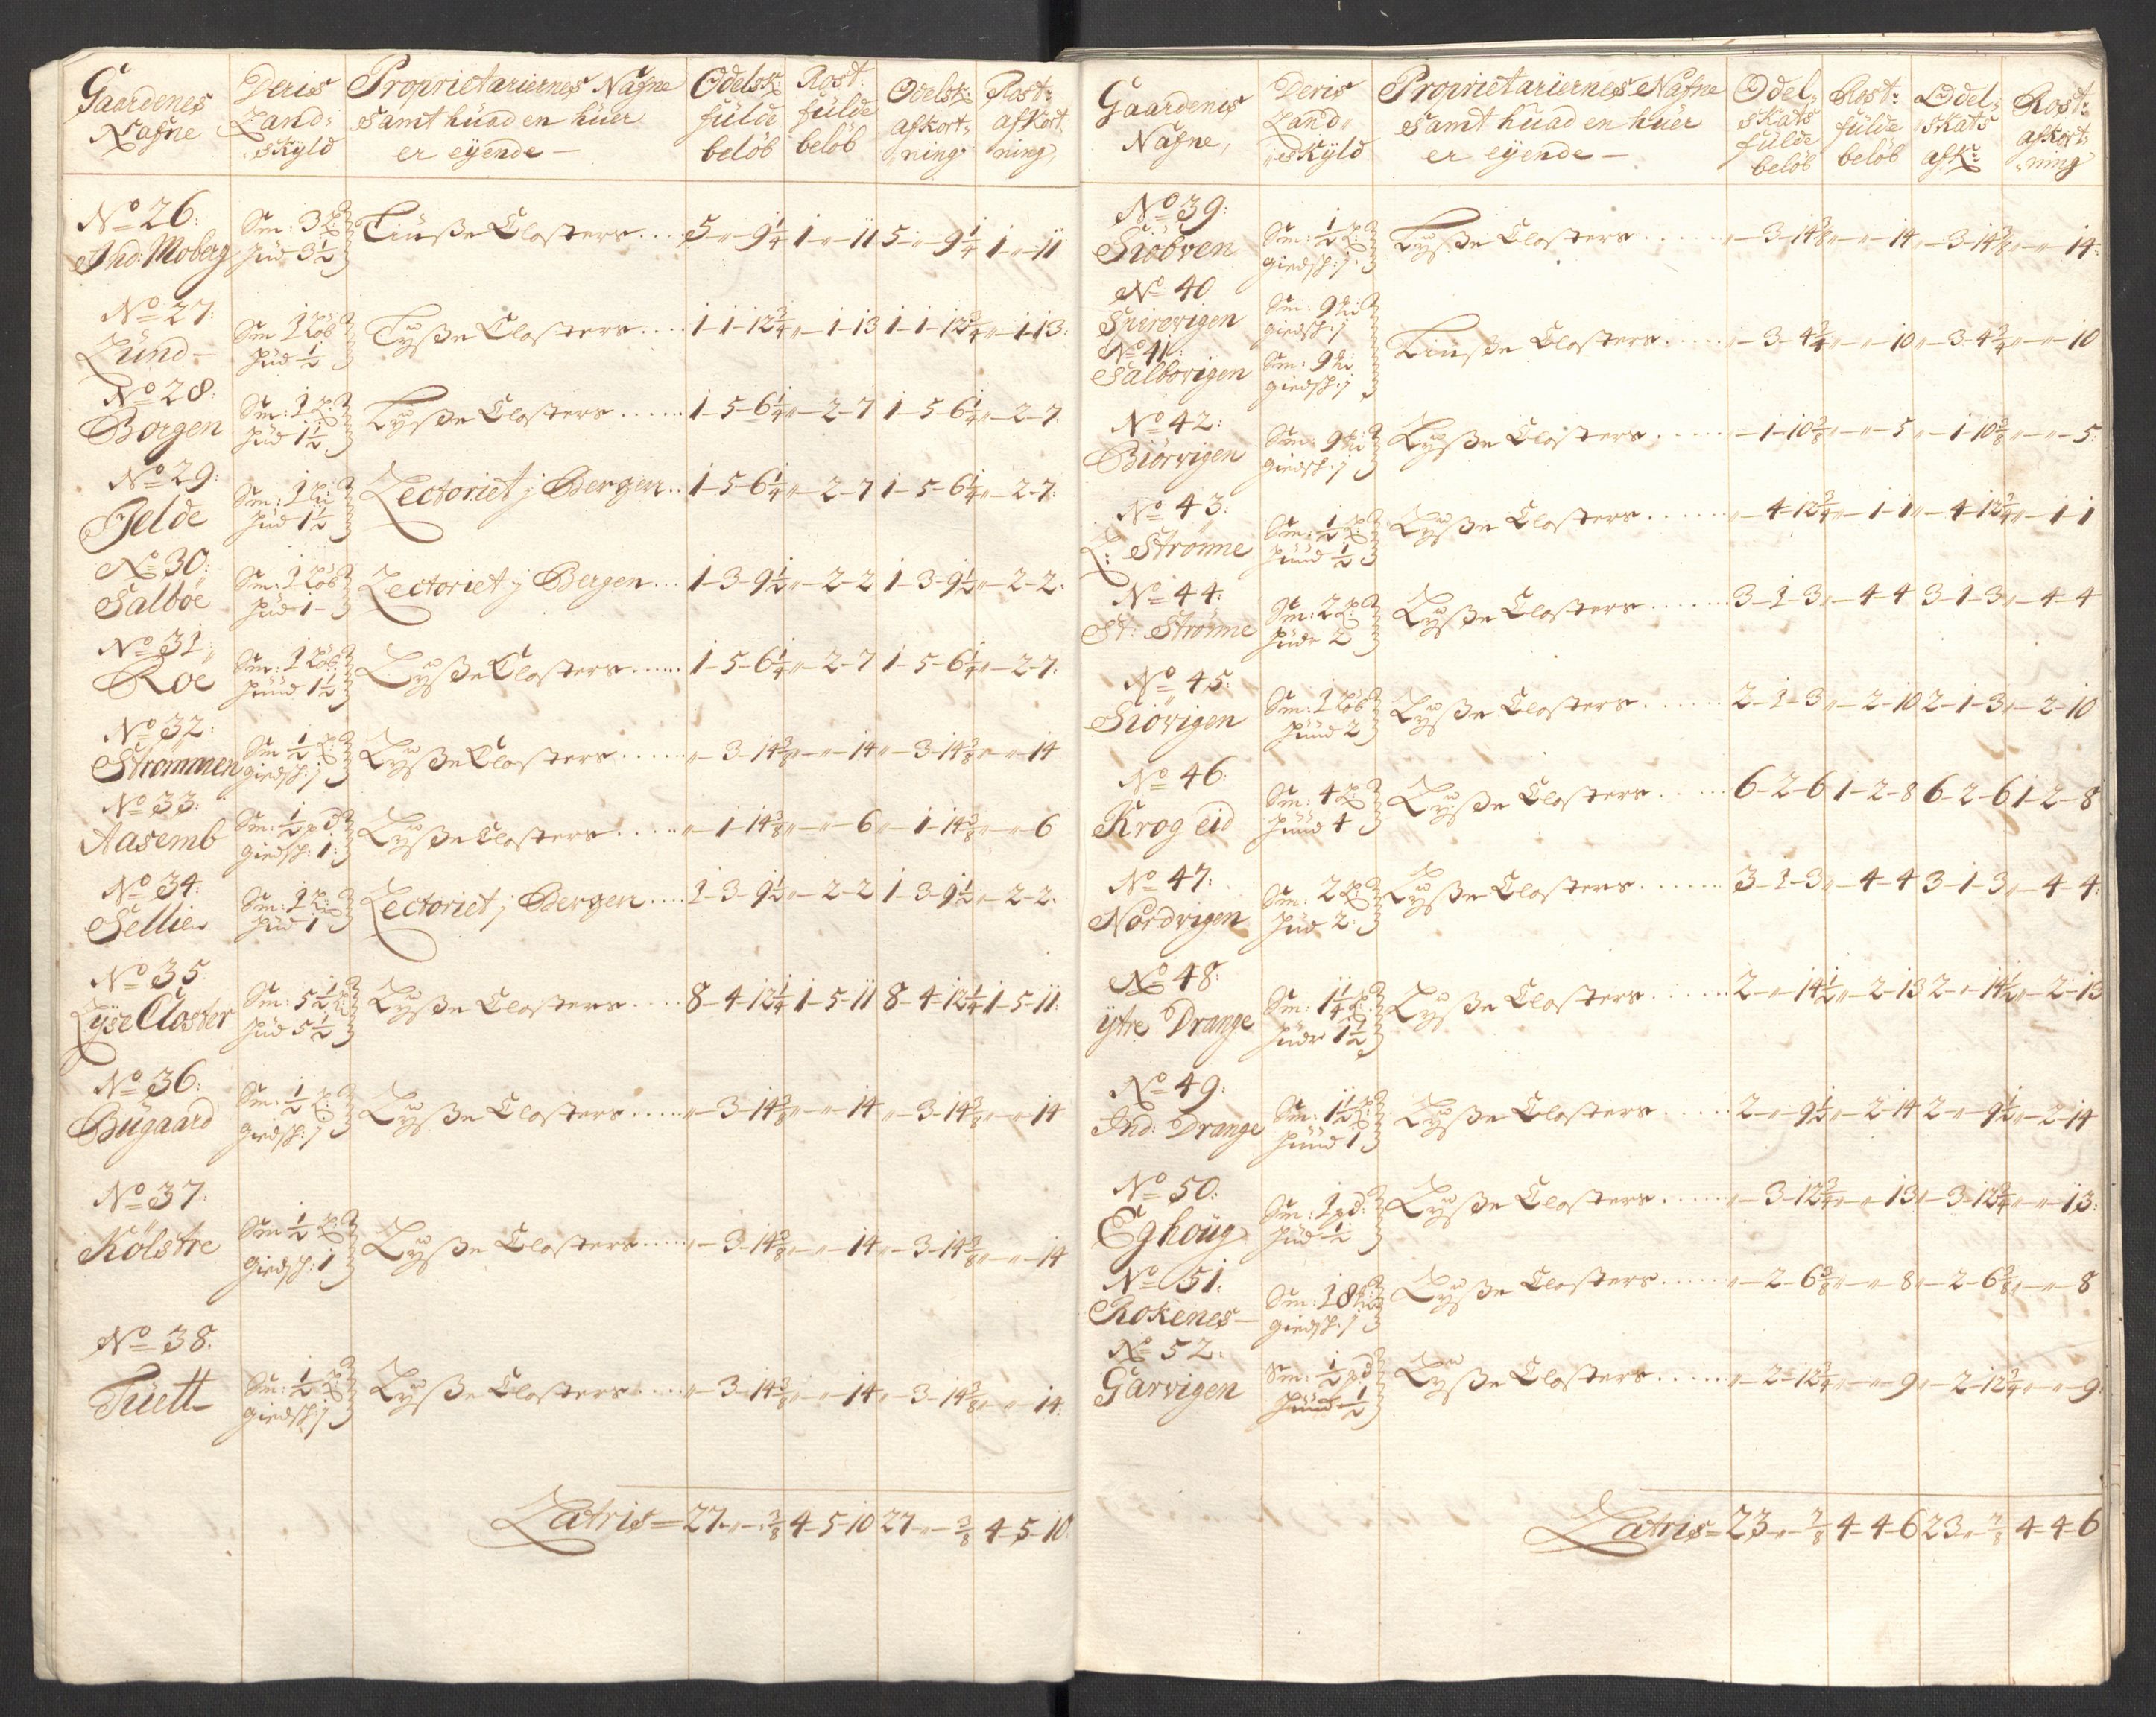 Gaardenes Nafne
Deris Land: skyld
Proprietariernes Nafne samt huad en huer er eyende —
Odelsk: fülde belöb
Rost: fülde belöb
Odelsk: afkort: ning
Rost: afkort ning
No 26: Ind: Moberg
Sm: 3 Hüd 3½
Lÿsse Closters.... 5 - „ - 9¼ 1 - „ - 11 5 - „ - 9¼ 1 - „ - 11
No 27: Lünd —
Sm 1 Löb Hüd ½
Lysse Closters.... 1-1-12¾ „-1-13 1-1-12¾ „-1-13:
No 28: Borgen
Sm: 1 Hüd 1½
Lysse Closters...... 1-5-6¼ „-2-7 1-5-6¼ „-2-7.
No 29: Jelde
Sm: 1 Hüd 1½
Lectoriet j Bergen.. 1-5-6¼ „-2-7 1-5-6¼ „-2-7:
No 30: Salboe
Sm: 1 Löb Hüd 1 -
Lectoriet j Bergen... 1-3-9½ „-2-2 1-3-9½ „-2-2:
No 31: Roe
Sm: 1 Löb Hüud 1½
Lysse Closters...... 1-5-6¼ „-2-7 1-5-6¼ „-2-7:
No 32: Strømmen
Sm ½ giedsk: j
Lysse Closters..... „-3-14⅜ „-„-14 „-3-14⅜ „-„-14
No 33: Aasemb
Sm: ½ pd: giedsk: 1:
Lysse Closters..... „-1-14⅜ „-„-6 „-1-14⅜ „-„-6
No 34: Sellie
Sm: 1 Hüd 1
Lectoriet j Bergen.... 1-3-9½ „-2-2 1-3-9½ „-2-2:
No 35: Lÿse Closter
Sm: 5½ Hüd 5½
Lysse Closters.... 8-4-12¼ 1-5-11 8-4-12¼ 1-5-11:
No 36: Bügaard
Sm: ½ giedsk: j
Lysse Closters..... „-3-14⅜ „-„-14 „-3-14⅜ „-„-14
No 37: Kolstre
Sm ½ Giedsk: 1
Lysse Closters..... „-3-14⅜ „-„-14 „-3-14⅜ „-„-14
No 38: Tüett
Sm: ½ giedsk: j
Lysse Closters.... „-3-14⅜ „-„-14 „-3-14⅜ „-„-14:
Latris = 27-„-⅜ 4-5-10 27-„-⅜ 4-5-10:
Gaardenis Nafne,
Deris Land„ „skÿld
Proprietariernes Nafne samt huad en huer er eÿende —
Odel„ skats fülde belöb
Rost: fülde belöb
Odel„ skats afk:
Rost: afkort „ning
No 39: Siöbven
Sm: ½ giedsk: j
Lysse Closters..... „-3-14⅜ „-„-14 „-3-14⅜ „-„-14:
No 40 Speirvigen
Sm: 9 giedsk: j
No 41: Salbovigen
Sm: 9 giedsk: j
Lÿsse Closters..... „-3-4¾ „-„-10 „-3-4¾ „-„-10
No 42: Biörvigen
Sm: 9 giedsk: j
Lysse Closters..... „-1-10⅜ „-„-5 „-1-10⅜ „-„-5:
No 43: L: Strønne
Sm: ½ Hüud ½
Lysse Closters...... „-4-12¾ „-1-1 „-4-12¾ „-1-1
No 44: St: Strønne
Sm: 2 Hüde 2
Lysse Closters....... 3-1-3 „-4-4 3-1-3 „-4-4
No 45: Siövigen
Sm: 1 Löb Hüud 2
Lysse Closters...... 2-1-3 „-2-10 2-1-3 „-2-10
No 46: Krog eid
Sm: 4 Hüud 4
Lysse Closters..... 6-2-6 1-2-8 6-2-6 1-2-8
No 47: Nordvigen
Sm: 2 Hüd 2:
Lysse Closters....... 3-1-3 „-4-4 3-1-3 „-4-4:
No 48: ÿtre Drange
Sm: 1¼ Hüde 1½
Lysse Closters...... 2-„-14½ „-2-13 2-„-14½ „-2-13
No 49: Ind: Drange
Sm: 1½ Hüud 1
Lysse Closters..... 2-„-9½ „-2-14 2-„-9½ „-2-14
No 50: Eghoug
Sm: 1 pd: Hüd ½
Lysse Closters...... „-3-12¾ „-„-13 „-3-12¾ „-„-13:
No 51: Rokenes —
Sm: 18 giedsk: j
Lysse Closters...... „-2-6⅜ „-„-8 „-2-6⅜ „-„-8
No 52: Garvigen
Sm: ½ pd Hüud ½
Lysse Closters...... „-2-12¾ „-„-9 „-2-12¾ „-„-9:
Latris = 23-„-⅞ 4-4-6 23-„-⅞ 4-4-6